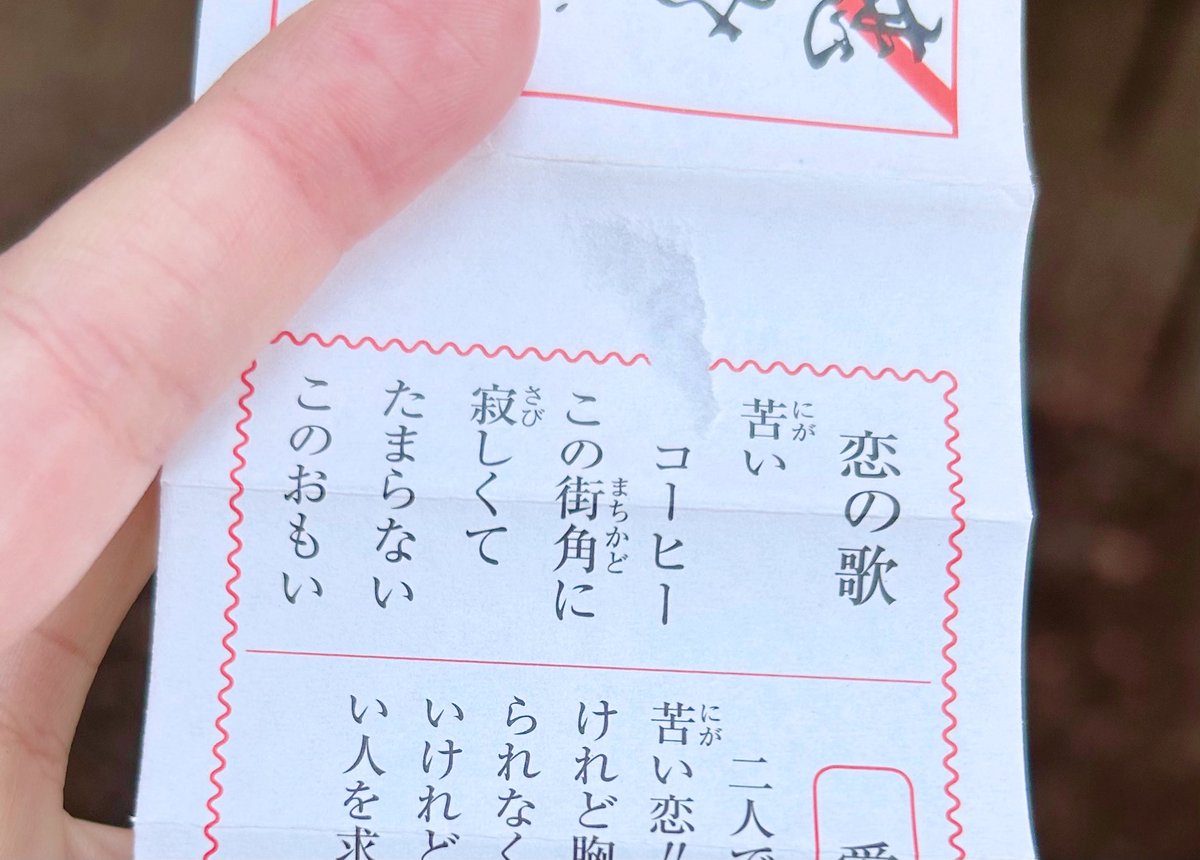 恋の歌
苦い
にが
コーヒー
この街角に
まちかど
寂しくて
さび
たまらない
このおもい
二人で
苦い恋!!
にが
けれど胸
られなく
いけれど
い人を求